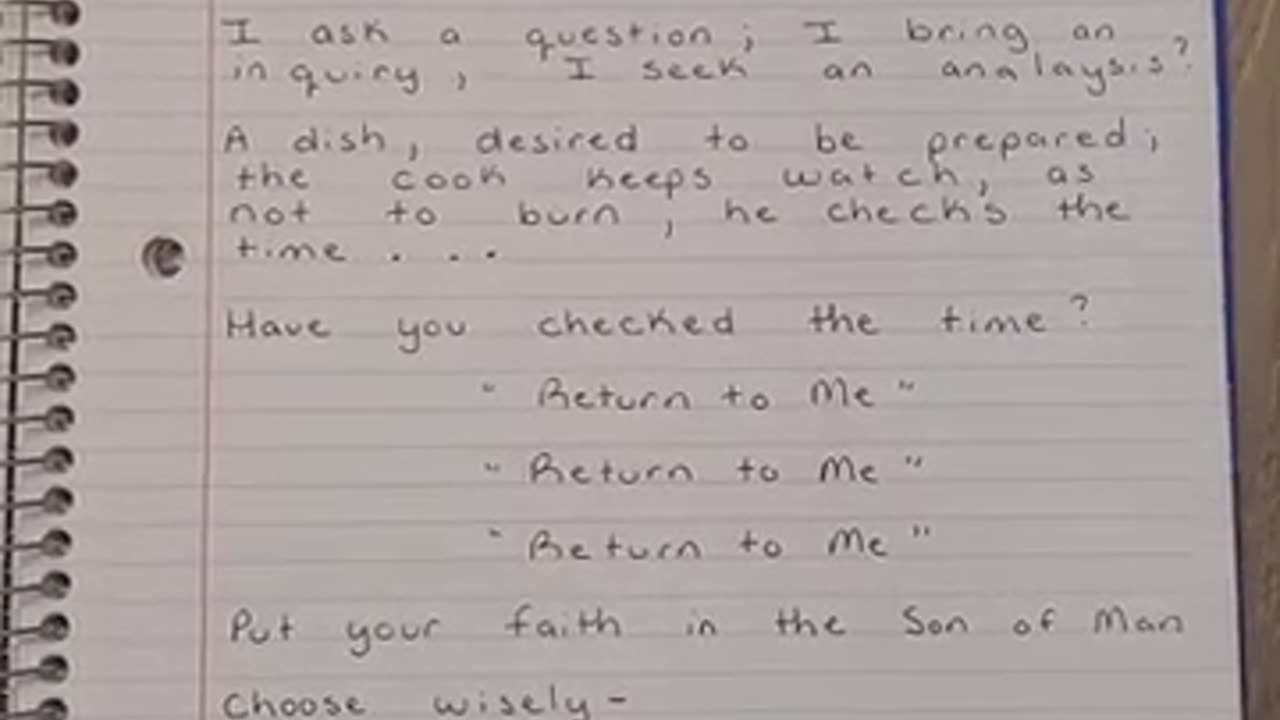 I ask a question; I bring an
inquiry, I seek an analaysis?
A dish, desired to be prepared;
the cook keeps watch, as
not to burn, he checks the
time . . .
Have you checked the time?
"Return to Me"
"Return to Me"
"Return to Me"
Put your faith in the Son of Man
Choose wisely-